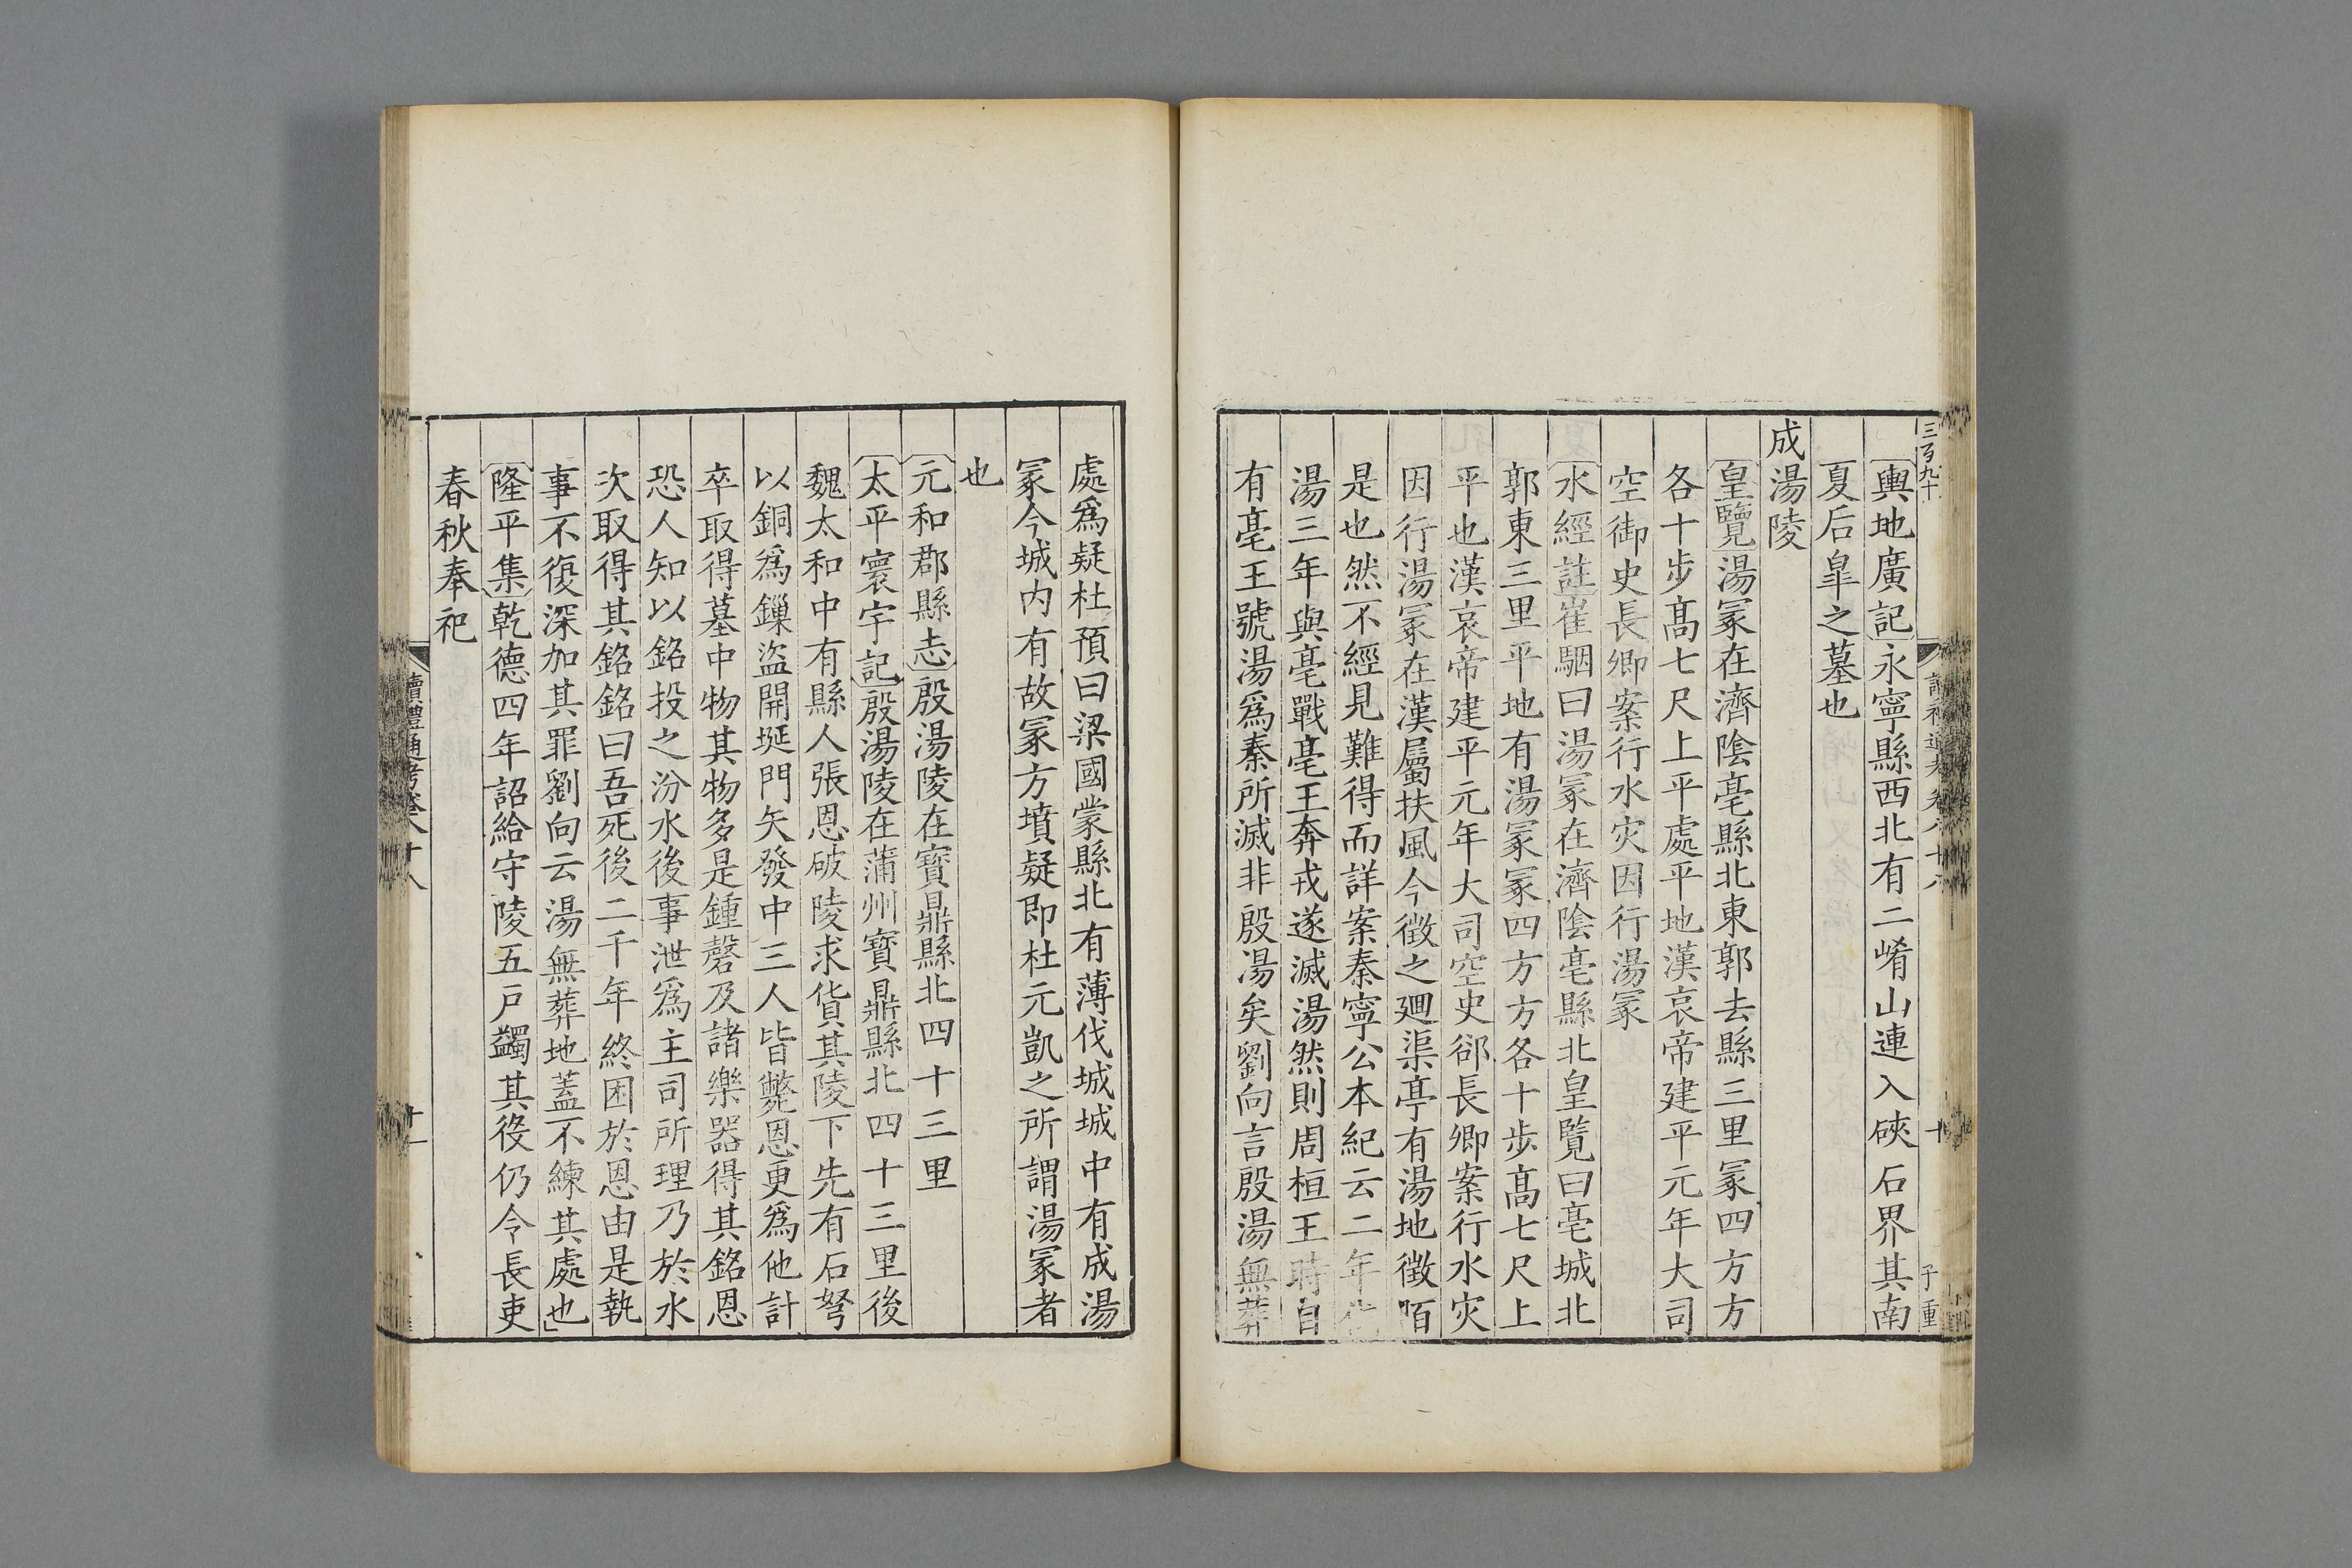 三百九十
十
子重
輿地廣記永寧縣西北有二崤山連入硤石界其南
夏后臯之墓也
成湯陵
皇覽湯冢在濟陰亳縣北東郭去縣三里冢四方方
各十步髙七尺上平處平地漢哀帝建平元年大司
空御史長卿案行水灾因行湯冢
水經註崔駰曰湯冢在濟陰亳縣北皇覽曰亳城北
郭東三里平地有湯冢冢四方方各十步髙七尺上
平也漢哀帝建平元年大司空史郤長卿案行水灾
因行湯冢在漢屬扶風今徵之廻渠亭有湯地徵陌
是也然不經見難得而詳案秦寧公本紀云二年伐
湯三年與亳戰亳王奔戎遂滅湯然則周桓王時自
有亳王號湯爲秦所滅非殷湯矣劉向言殷湯無葬
處爲疑杜預曰梁國蒙縣北有薄伐城城中有成湯
冢今城内有故冢方墳疑即杜元凱之所謂湯冢者
也
元和郡縣志殷湯陵在寳鼎縣北四十三里
太平寰宇記殷湯陵在蒲州寳鼎縣北四十三里後
魏太和中有縣人張恩破陵求貨其陵下先有石弩
以銅爲鏁盜開埏門矢發中三人皆斃恩更爲他計
卒取得墓中物其物多是鍾磬及諸樂器得其銘恩
恐人知以銘投之汾水後事泄爲主司所理乃於水
次取得其銘銘曰吾死後二千年終困於恩由是執
事不復深加其罪劉向云湯無葬地蓋不練其處也
隆平集乾德四年詔給守陵五戸蠲其役仍令長吏
春秋奉祀
讀禮通考卷八十八
十一